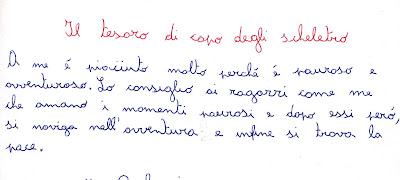 Il tesoro di capo degli scheletro
A me é piaciuto molto perché é pauroso e
avventuroso. Lo consiglio ai ragazzi come me
che amano i momenti paurosi e dopo essi peró,
si naviga nell'avventura e infine si trova la
pace.